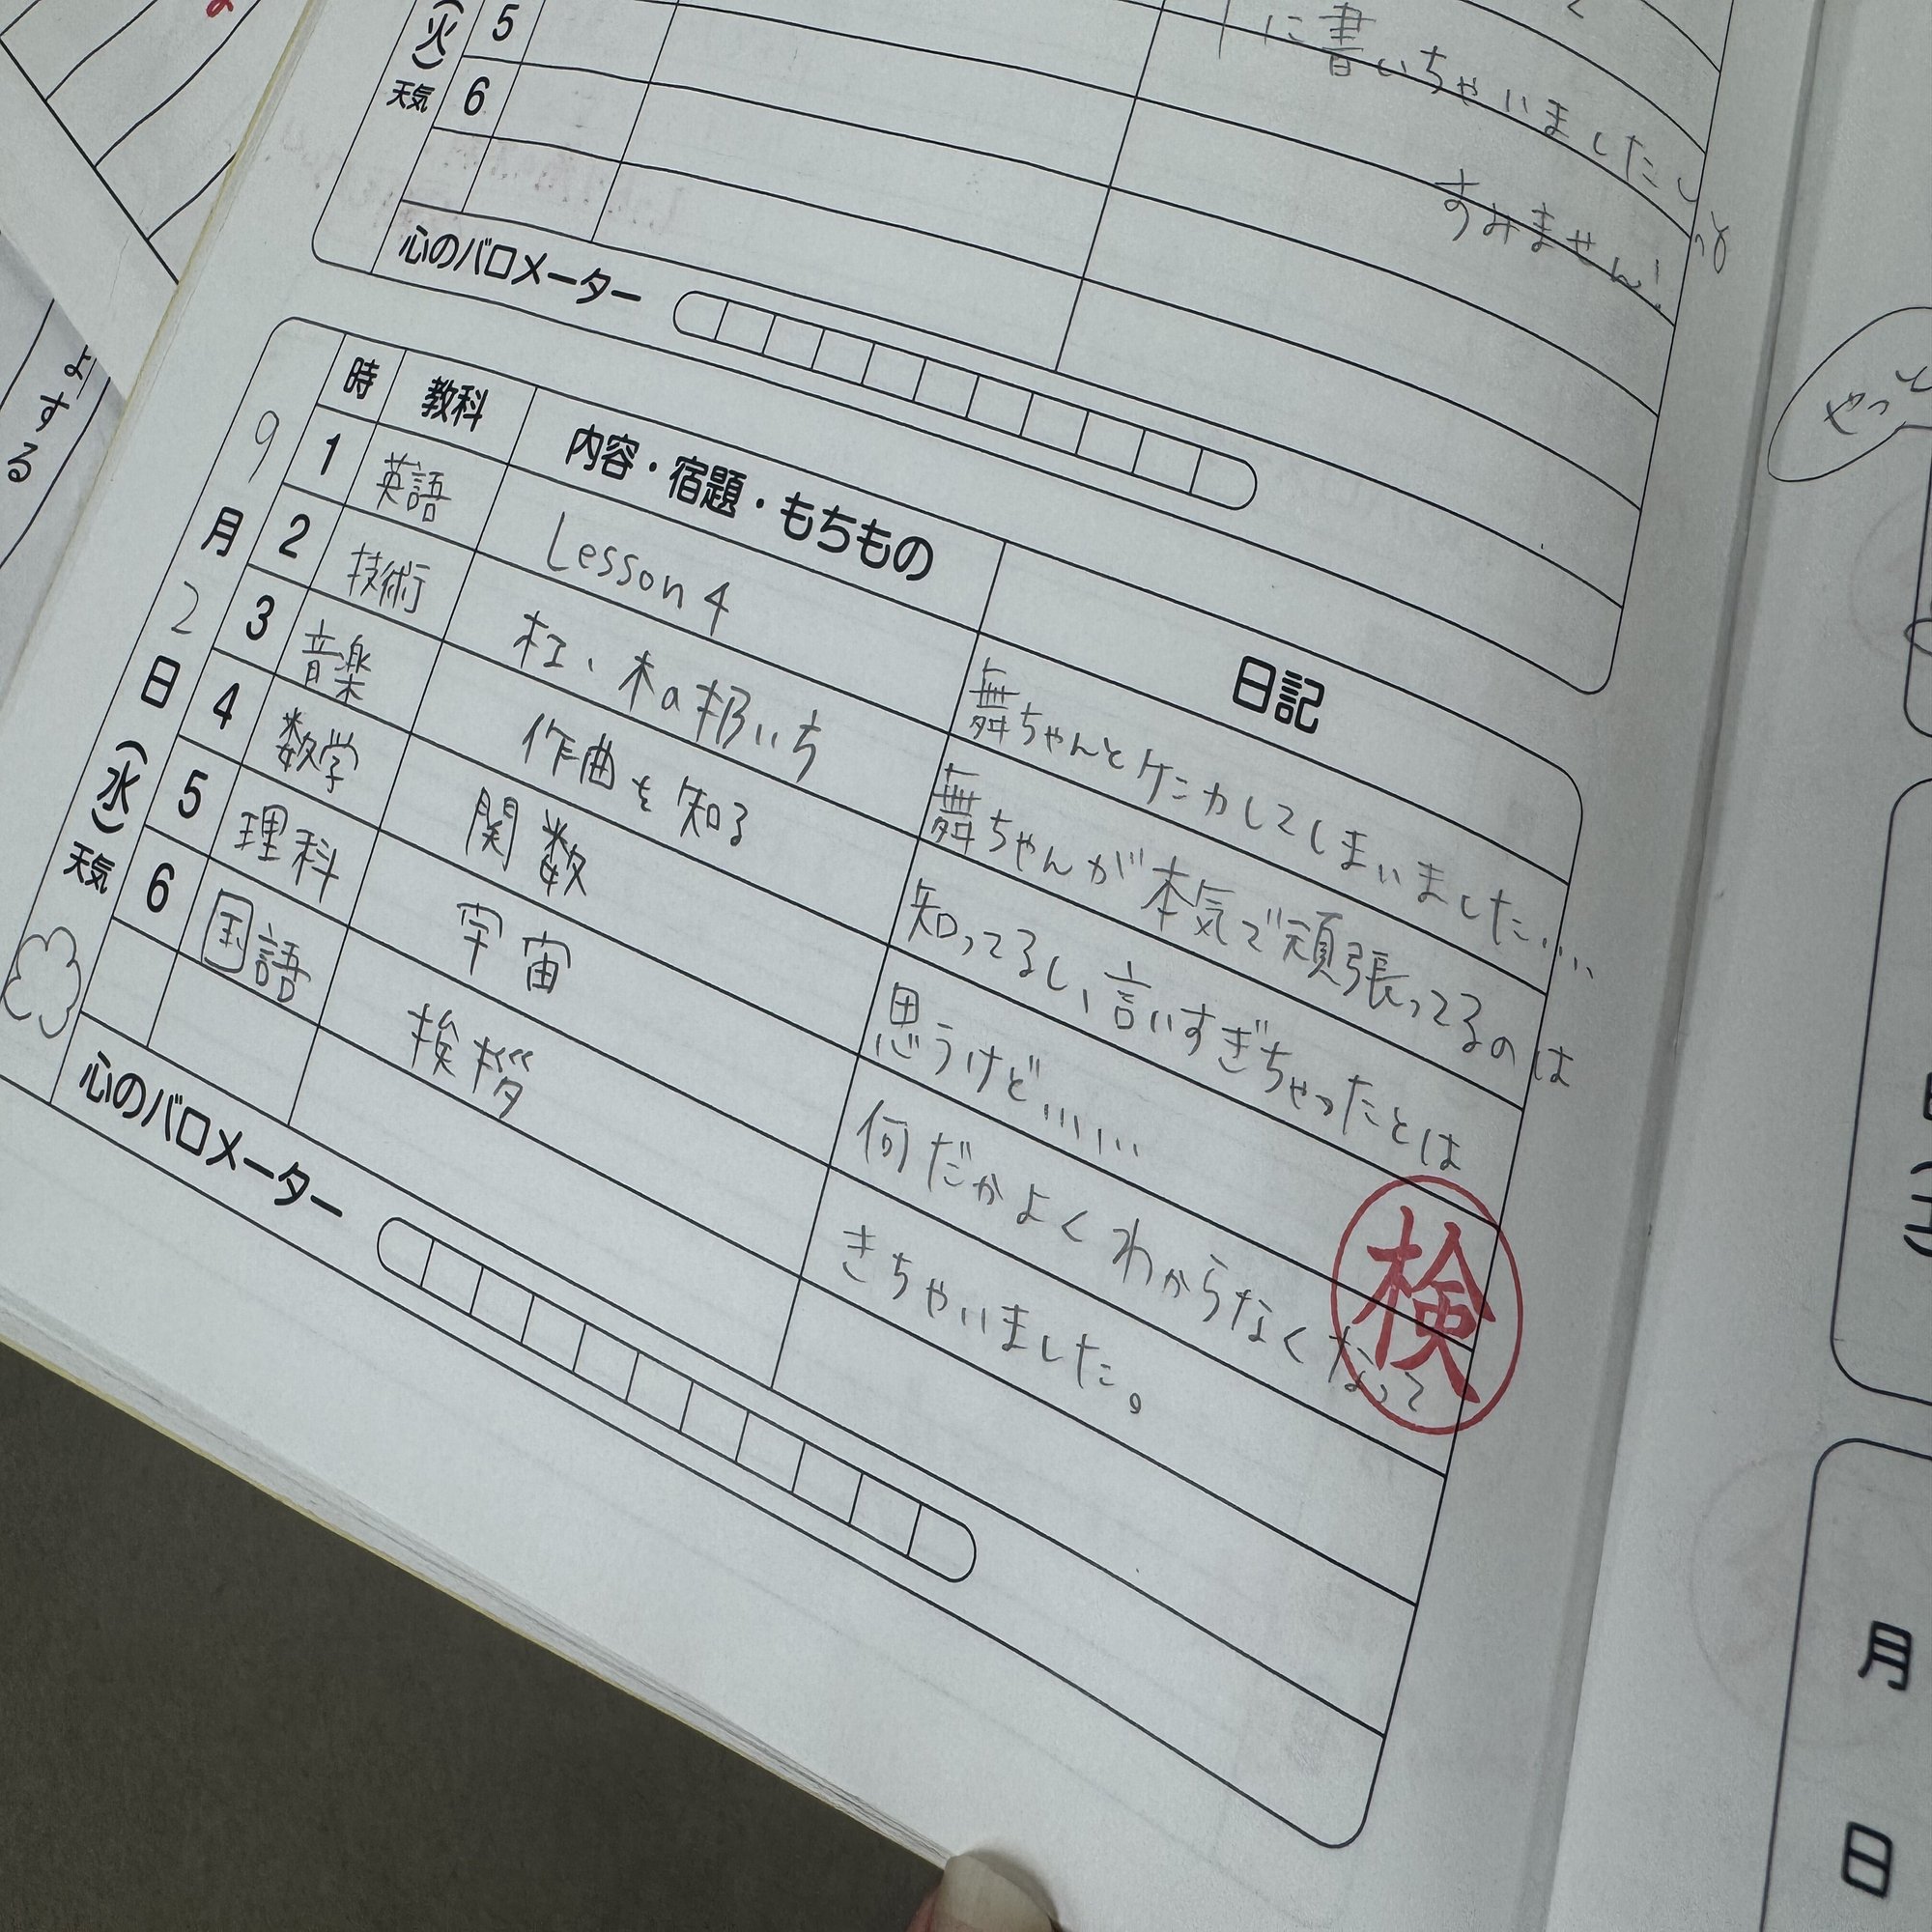 (火)
天気
5
6
に書いちゃいました
すみません!
心のバロメーター
よする
やっ
時 教科 内容・宿題・もちもの 日記
9月2日(水)
天気
1 英語 Lesson 4
2 技術
3 音楽 作曲を知る
4 数学 関数
5 理科 宇宙
6 国語 挨拶
舞ちゃんとケンカしてしまいました…
舞ちゃんが本気で頑張ってるのは
知ってるし、言いすぎちゃったとは
思うけど……
何だかよくわからなくなって
きちゃいました。
検
心のバロメーター
月
日